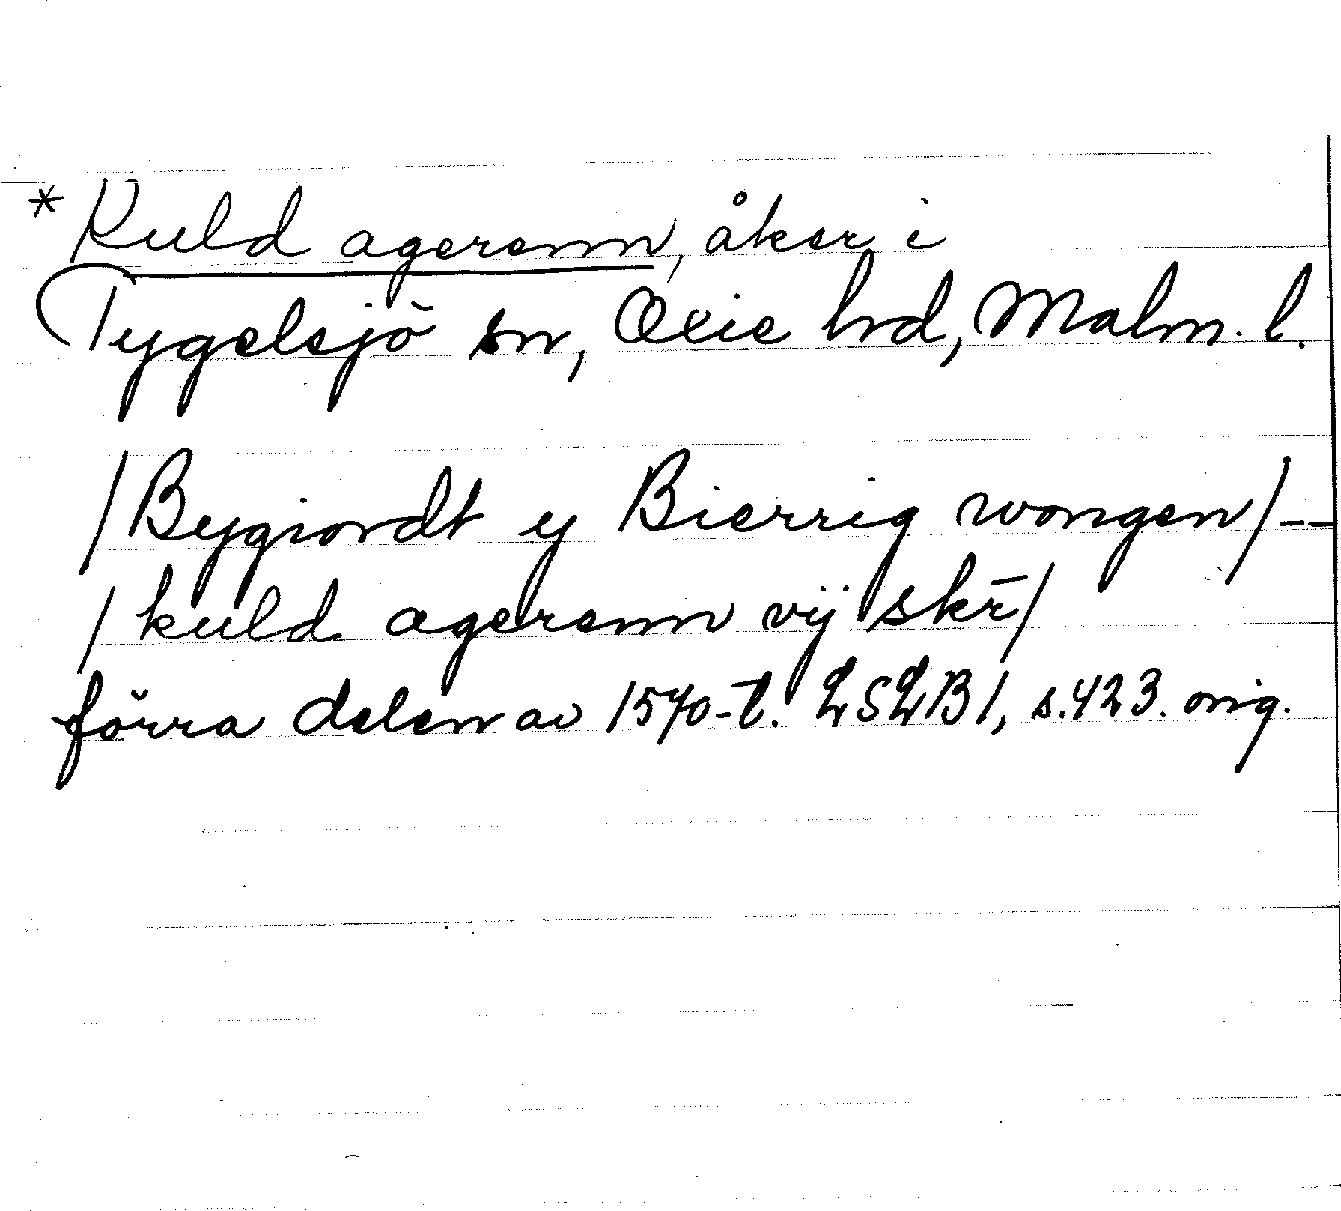 * Kuld agerenn, åker i
Tygelsjö sn, Oxie hd, Malm. l.
/Bygiordt ij Bierrig wongen/--
/kuld agerenn vij skr̄/
förra delen av 1570-t. LSLB 1, s. 423. orig.